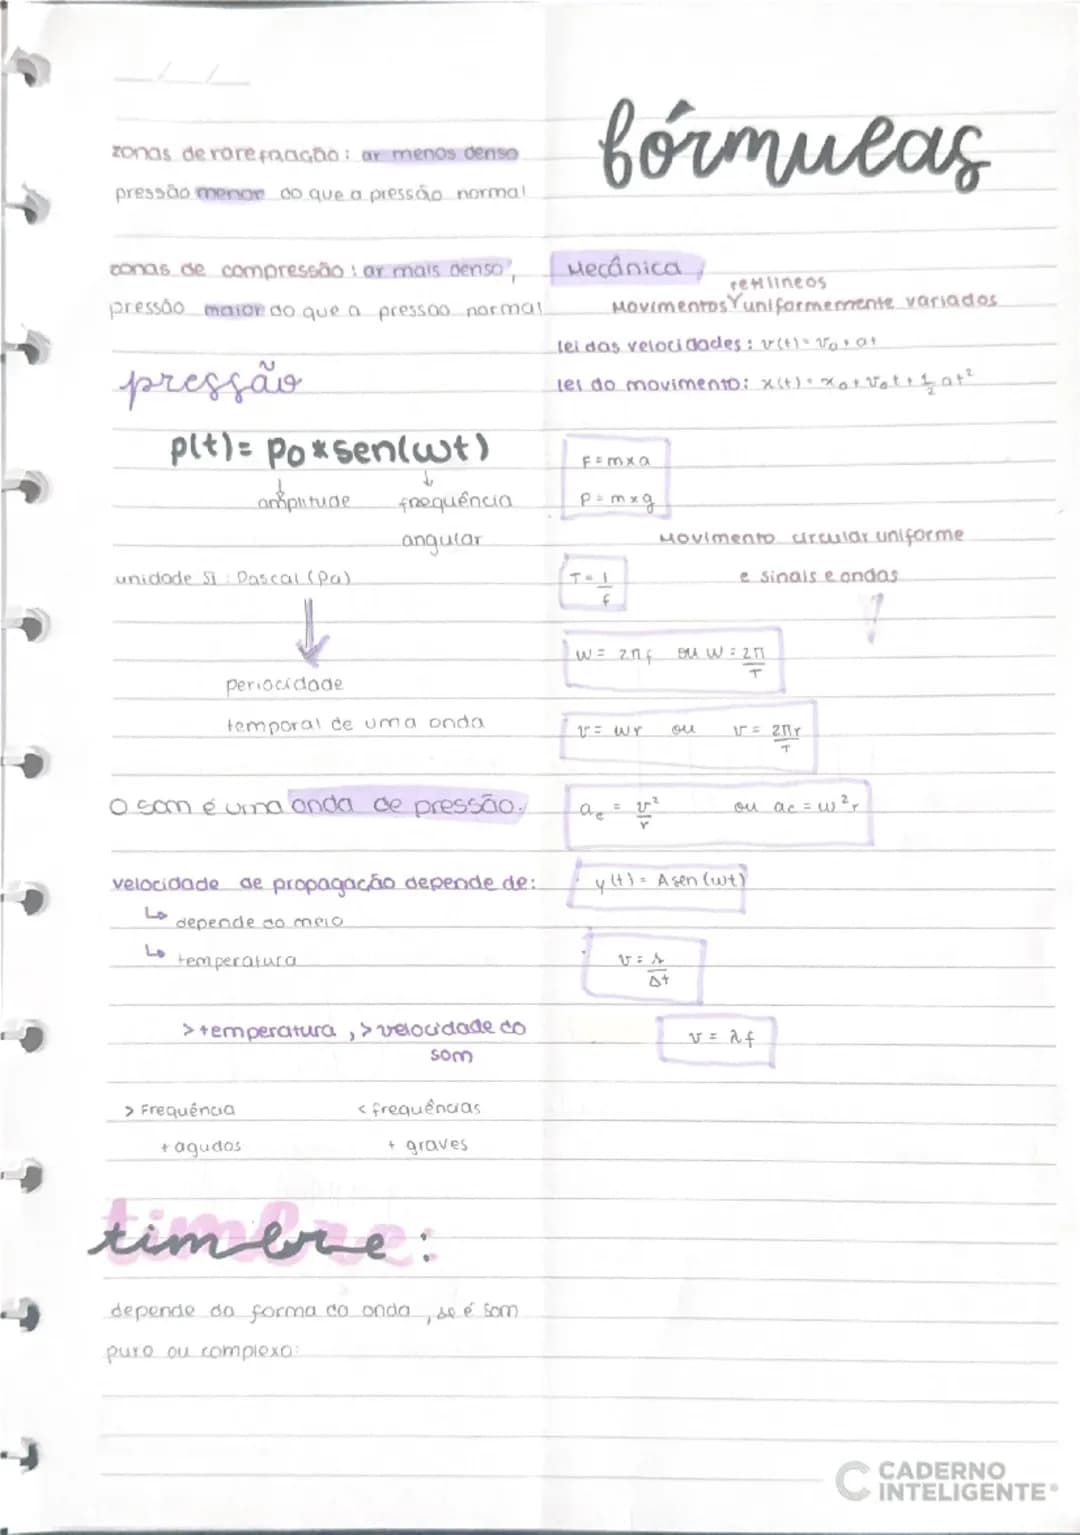 zonas de rarefração: ar menos denso
pressão menor do que a pressão normal
zonas de compressão: ar mais denso,
pressão maior do que a pressão normal
pressão
p(t)= p₀*sen(wt)
amplitude frequência
angular
unidade SI: Pascal (Pa)
periocidade
temporal de uma onda
O som é uma onda de pressão.
velocidade de propagação depende de:
↳ depende do meio
↳ temperatura
> temperatura, > velocidade do
som
> Frequência < frequências
+ agudos + graves
timbre:
depende da forma da onda, se é som
puro ou complexo:
fórmulas
Mecânica
retilíneos
Movimentos uniformemente variados
lei das velocidades: v(t)= v₀ + at
lei do movimento: x(t)= x₀ + v₀t + 1/2 at²
F = m x a
P = m x g
Movimento circular uniforme
e sinais e ondas
T = 1/f
w = 2πf ou w = 2π/T
v = wr ou v = 2πr/T
ac = v²/r ou ac = w²r
y(t) = A sen (wt)
v = s/Δt
v = λf
CADERNO
INTELIGENTE®